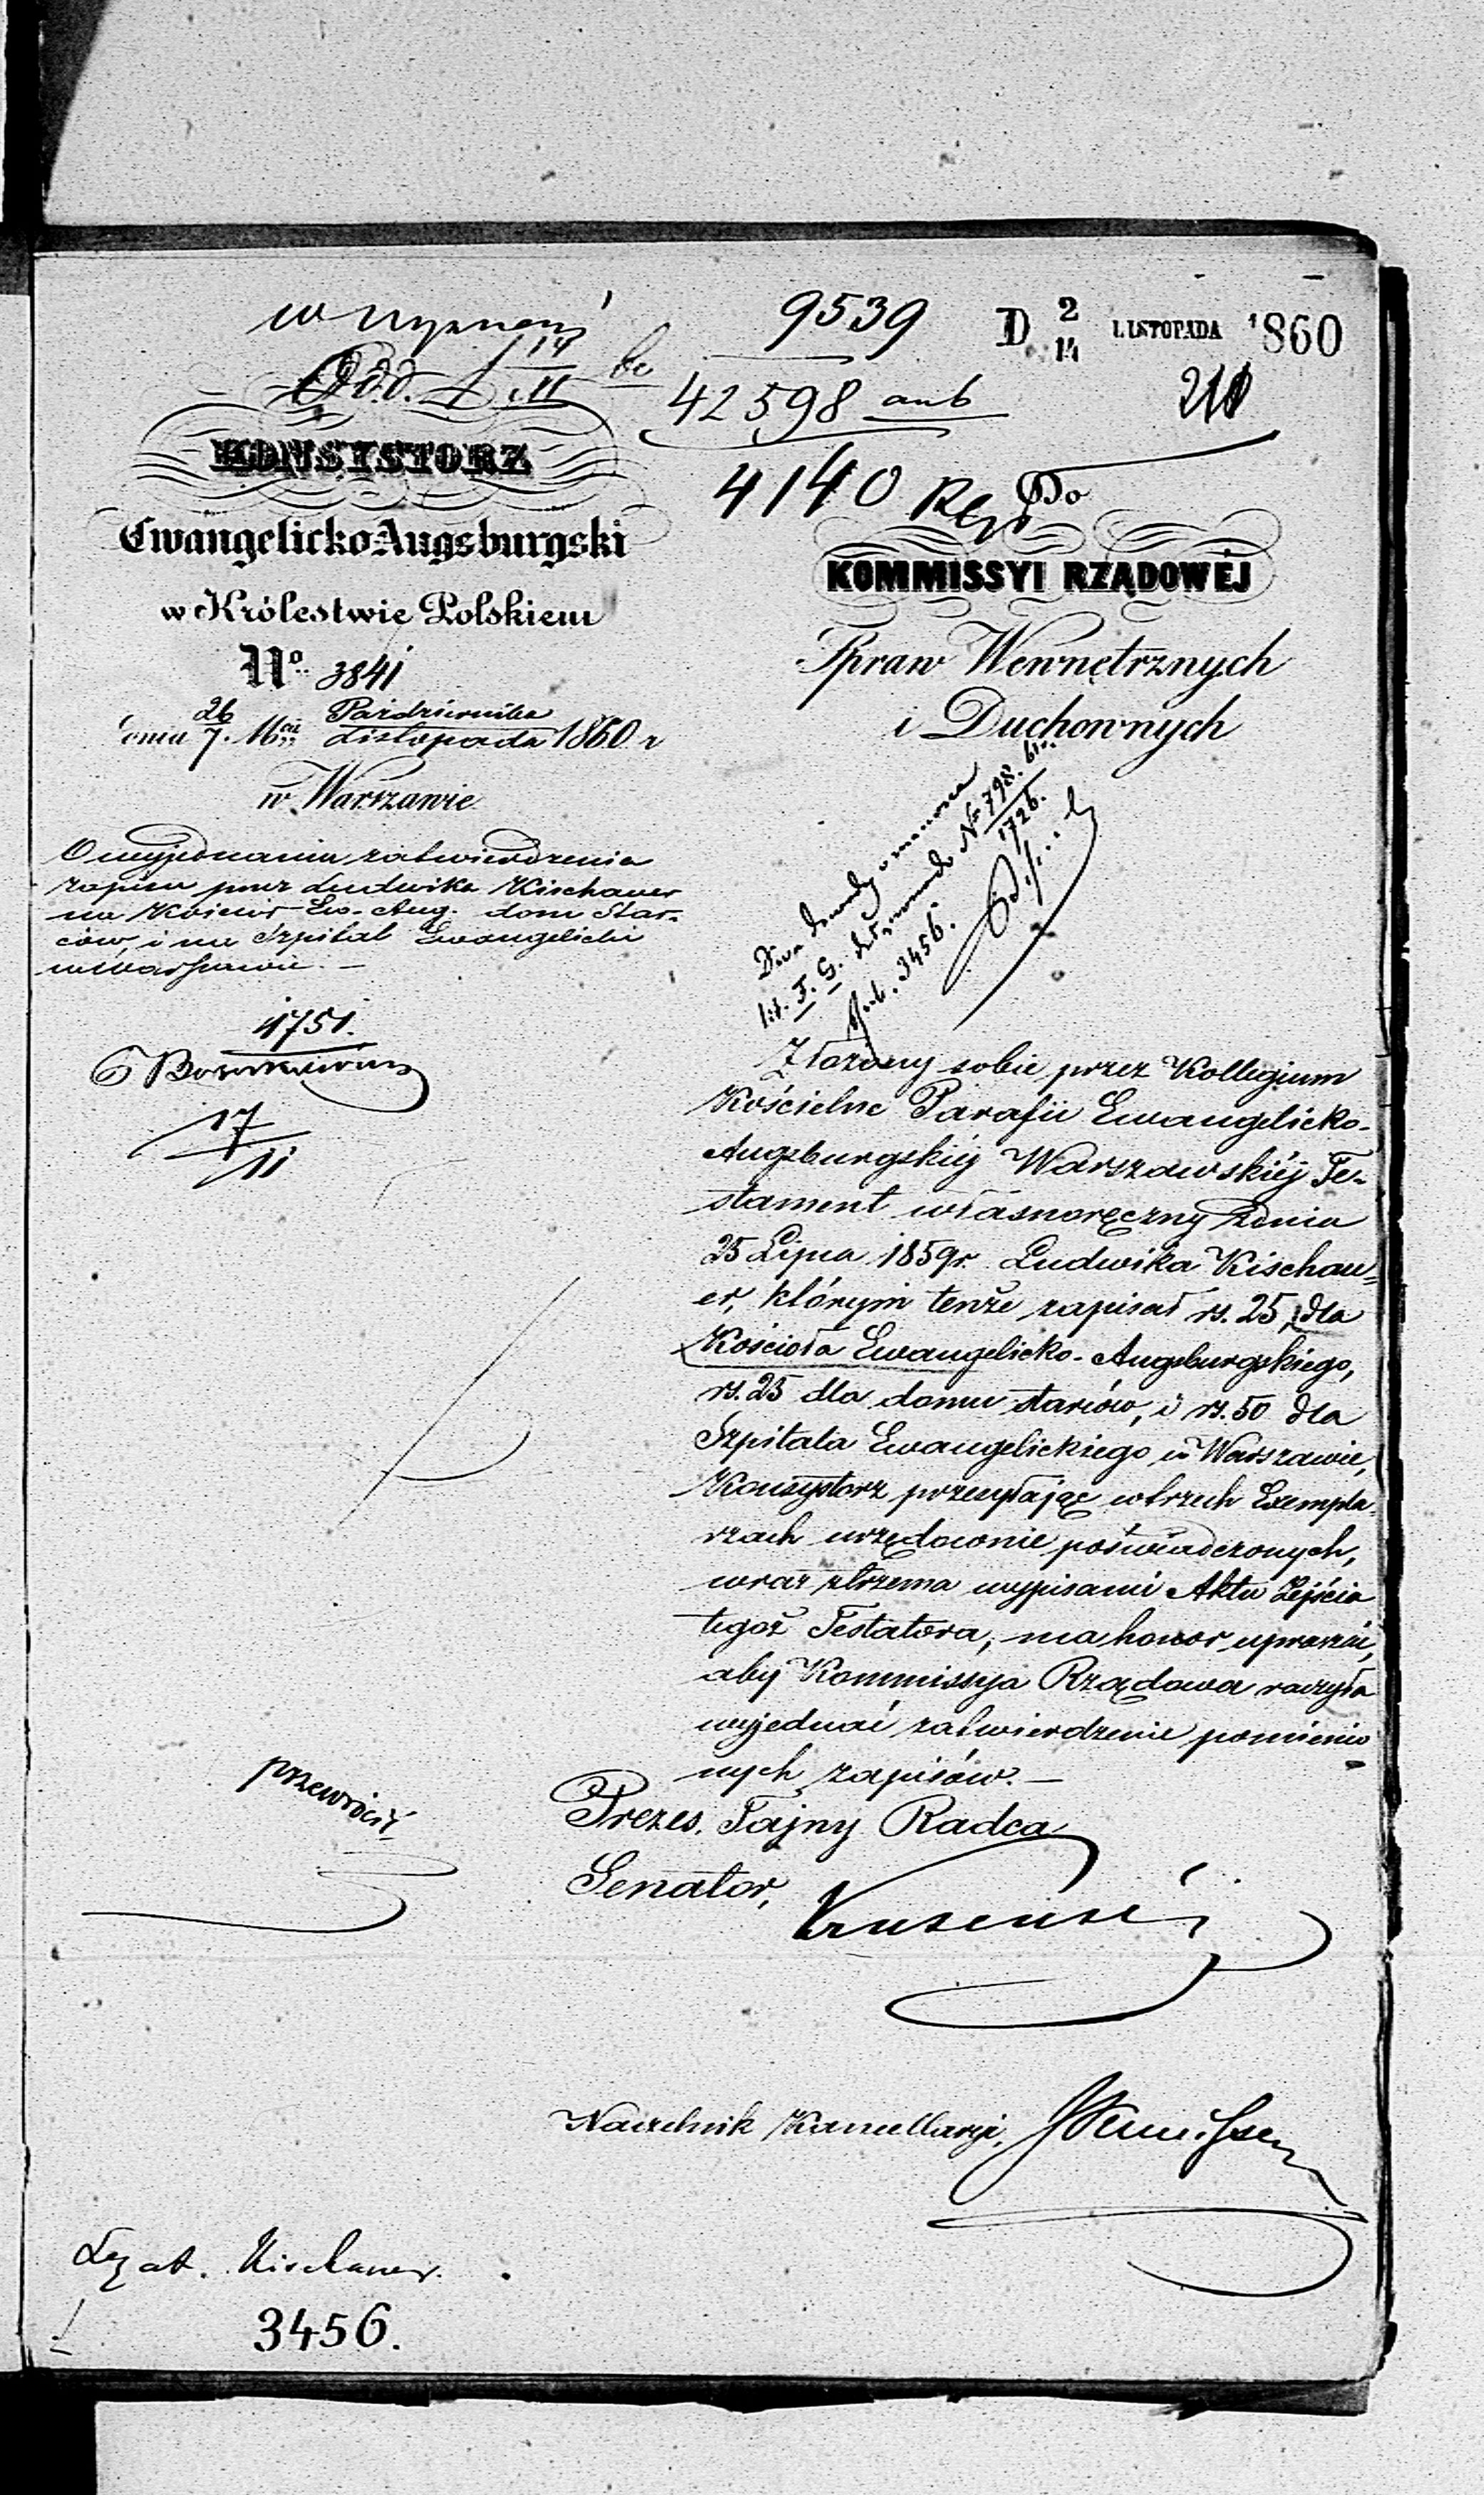 9539
D 2/14 LISTOPADA 1860
42598
4140
KONSYSTORZ
Ewangelicko Augsburgski
w Królestwie Polskiem
No. 3841
dnia 26/7. Mca Października/Listopada 1860 r
w Warszawie
O wyjednanie zatwierdzenia
zapisu przez Ludwika Kischauer
na Kościół Ew. Aug. dom Star-
ców, i na Szpital Ewangelicki
w Warszawie. —
4751.
17/11
Do
KOMMISSYI RZĄDOWÉJ
Spraw Wewnętrznych
i Duchownych
Dwa dowody
lit. F. G. No 798.
1726.
3456.
Złożony sobie przez Kollegium
Kościelne Parafii Ewangelicko-
Augsburgskiéj Warszawskiéj Te-
stament własnoręczny z dnia
25 Lipca 1859 r. Ludwika Kischau=
er, którym tenże zapisał rs. 25, dla
Kościoła Ewangelicko-Augsburgskiego,
rs. 25 dla domu starców, i rs. 50 dla
Szpitala Ewangelickiego w Warszawie,
Konsystorz przesyłając w trzech Exempla-
rzach urzędownie poświadczonych,
wraz z trzema wypisami Aktu Zejścia
tegoż Testatora, ma honor uprosić,
aby Kommissya Rządowa raczyła
wyjednać zatwierdzenie pomienio
nych zapisów. —
Prezes, Tajny Radca
Senator,
Naczelnik Kancellaryi,
przewrócić
Legat. Kischauer.
3456.